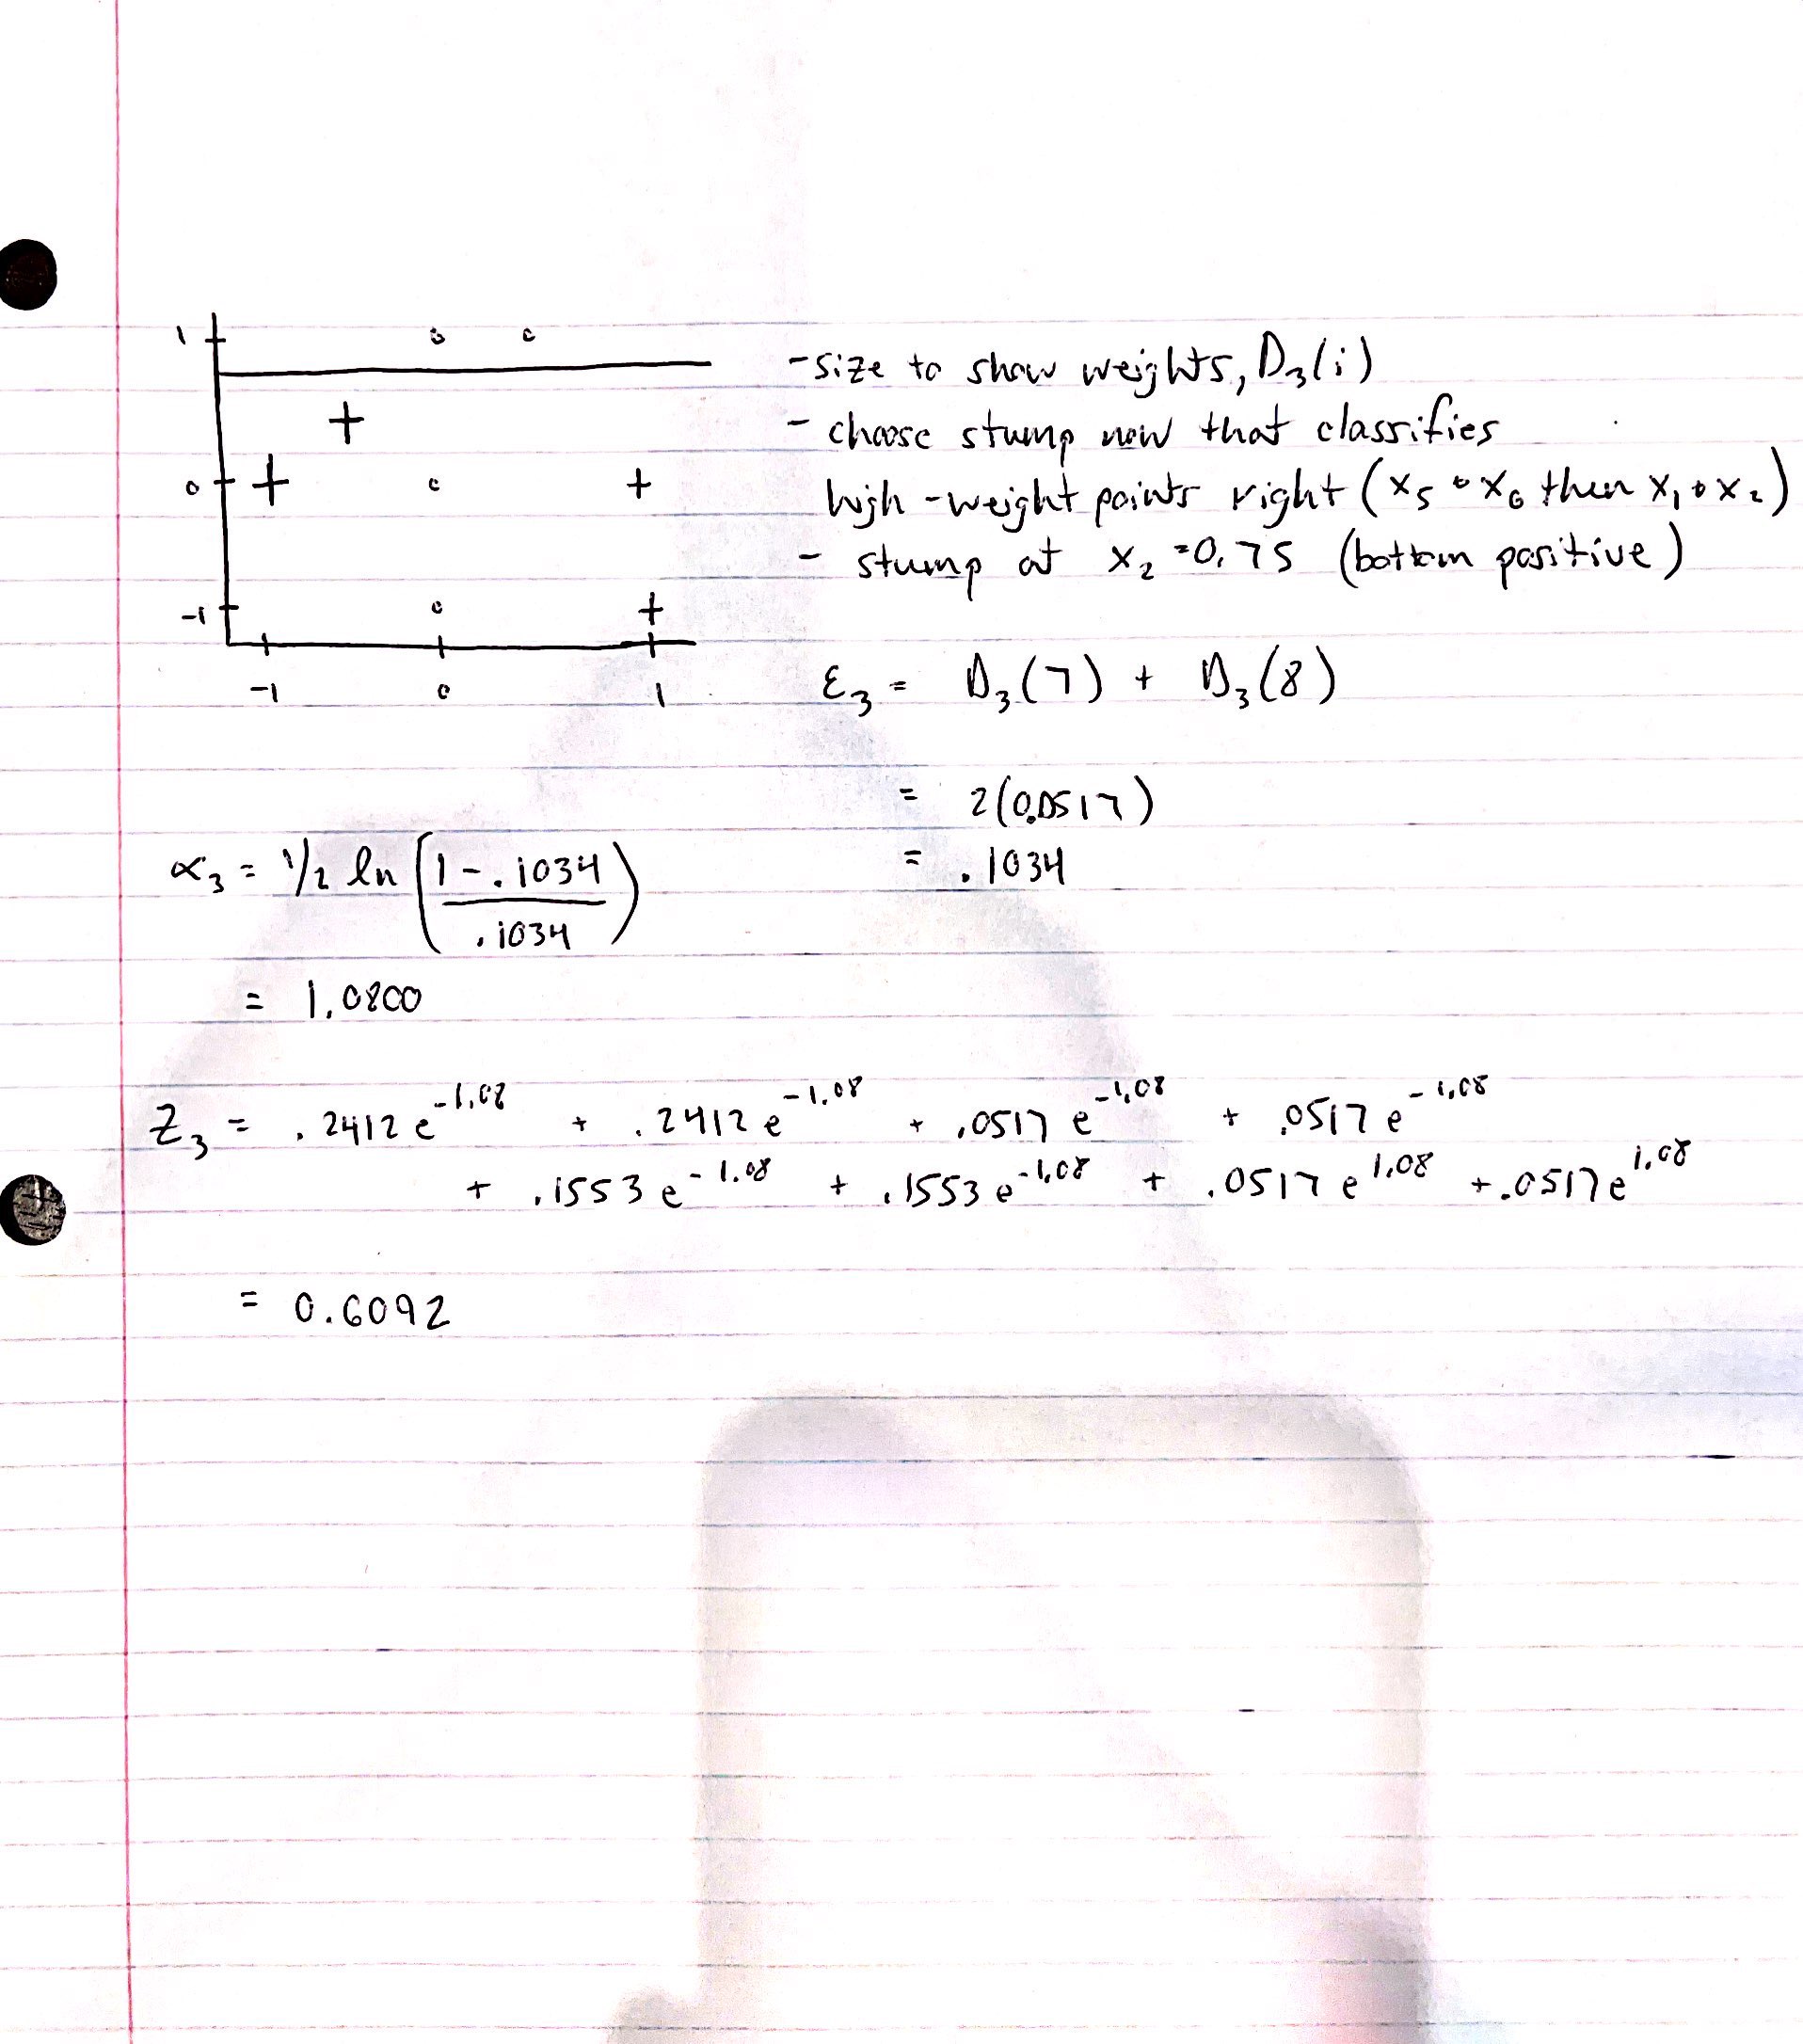 1
0
-1
-1 0 1
- size to show weights, D₃(i)
- choose stump now that classifies
high-weight points right (x₅ & x₆ then x₁ & x₂)
- stump at x₂ = 0.75 (bottom positive)
ε₃ = D₃(7) + D₃(8)
= 2(0.0517)
= .1034
α₃ = 1/2 ln ( (1 - .1034) / .1034 )
= 1.0800
Z₃ = .2412 e^{-1.08} + .2412 e^{-1.08} + .0517 e^{-1.08} + .0517 e^{-1.08}
+ .1553 e^{-1.08} + .1553 e^{-1.08} + .0517 e^{1.08} + .0517 e^{1.08}
= 0.6092